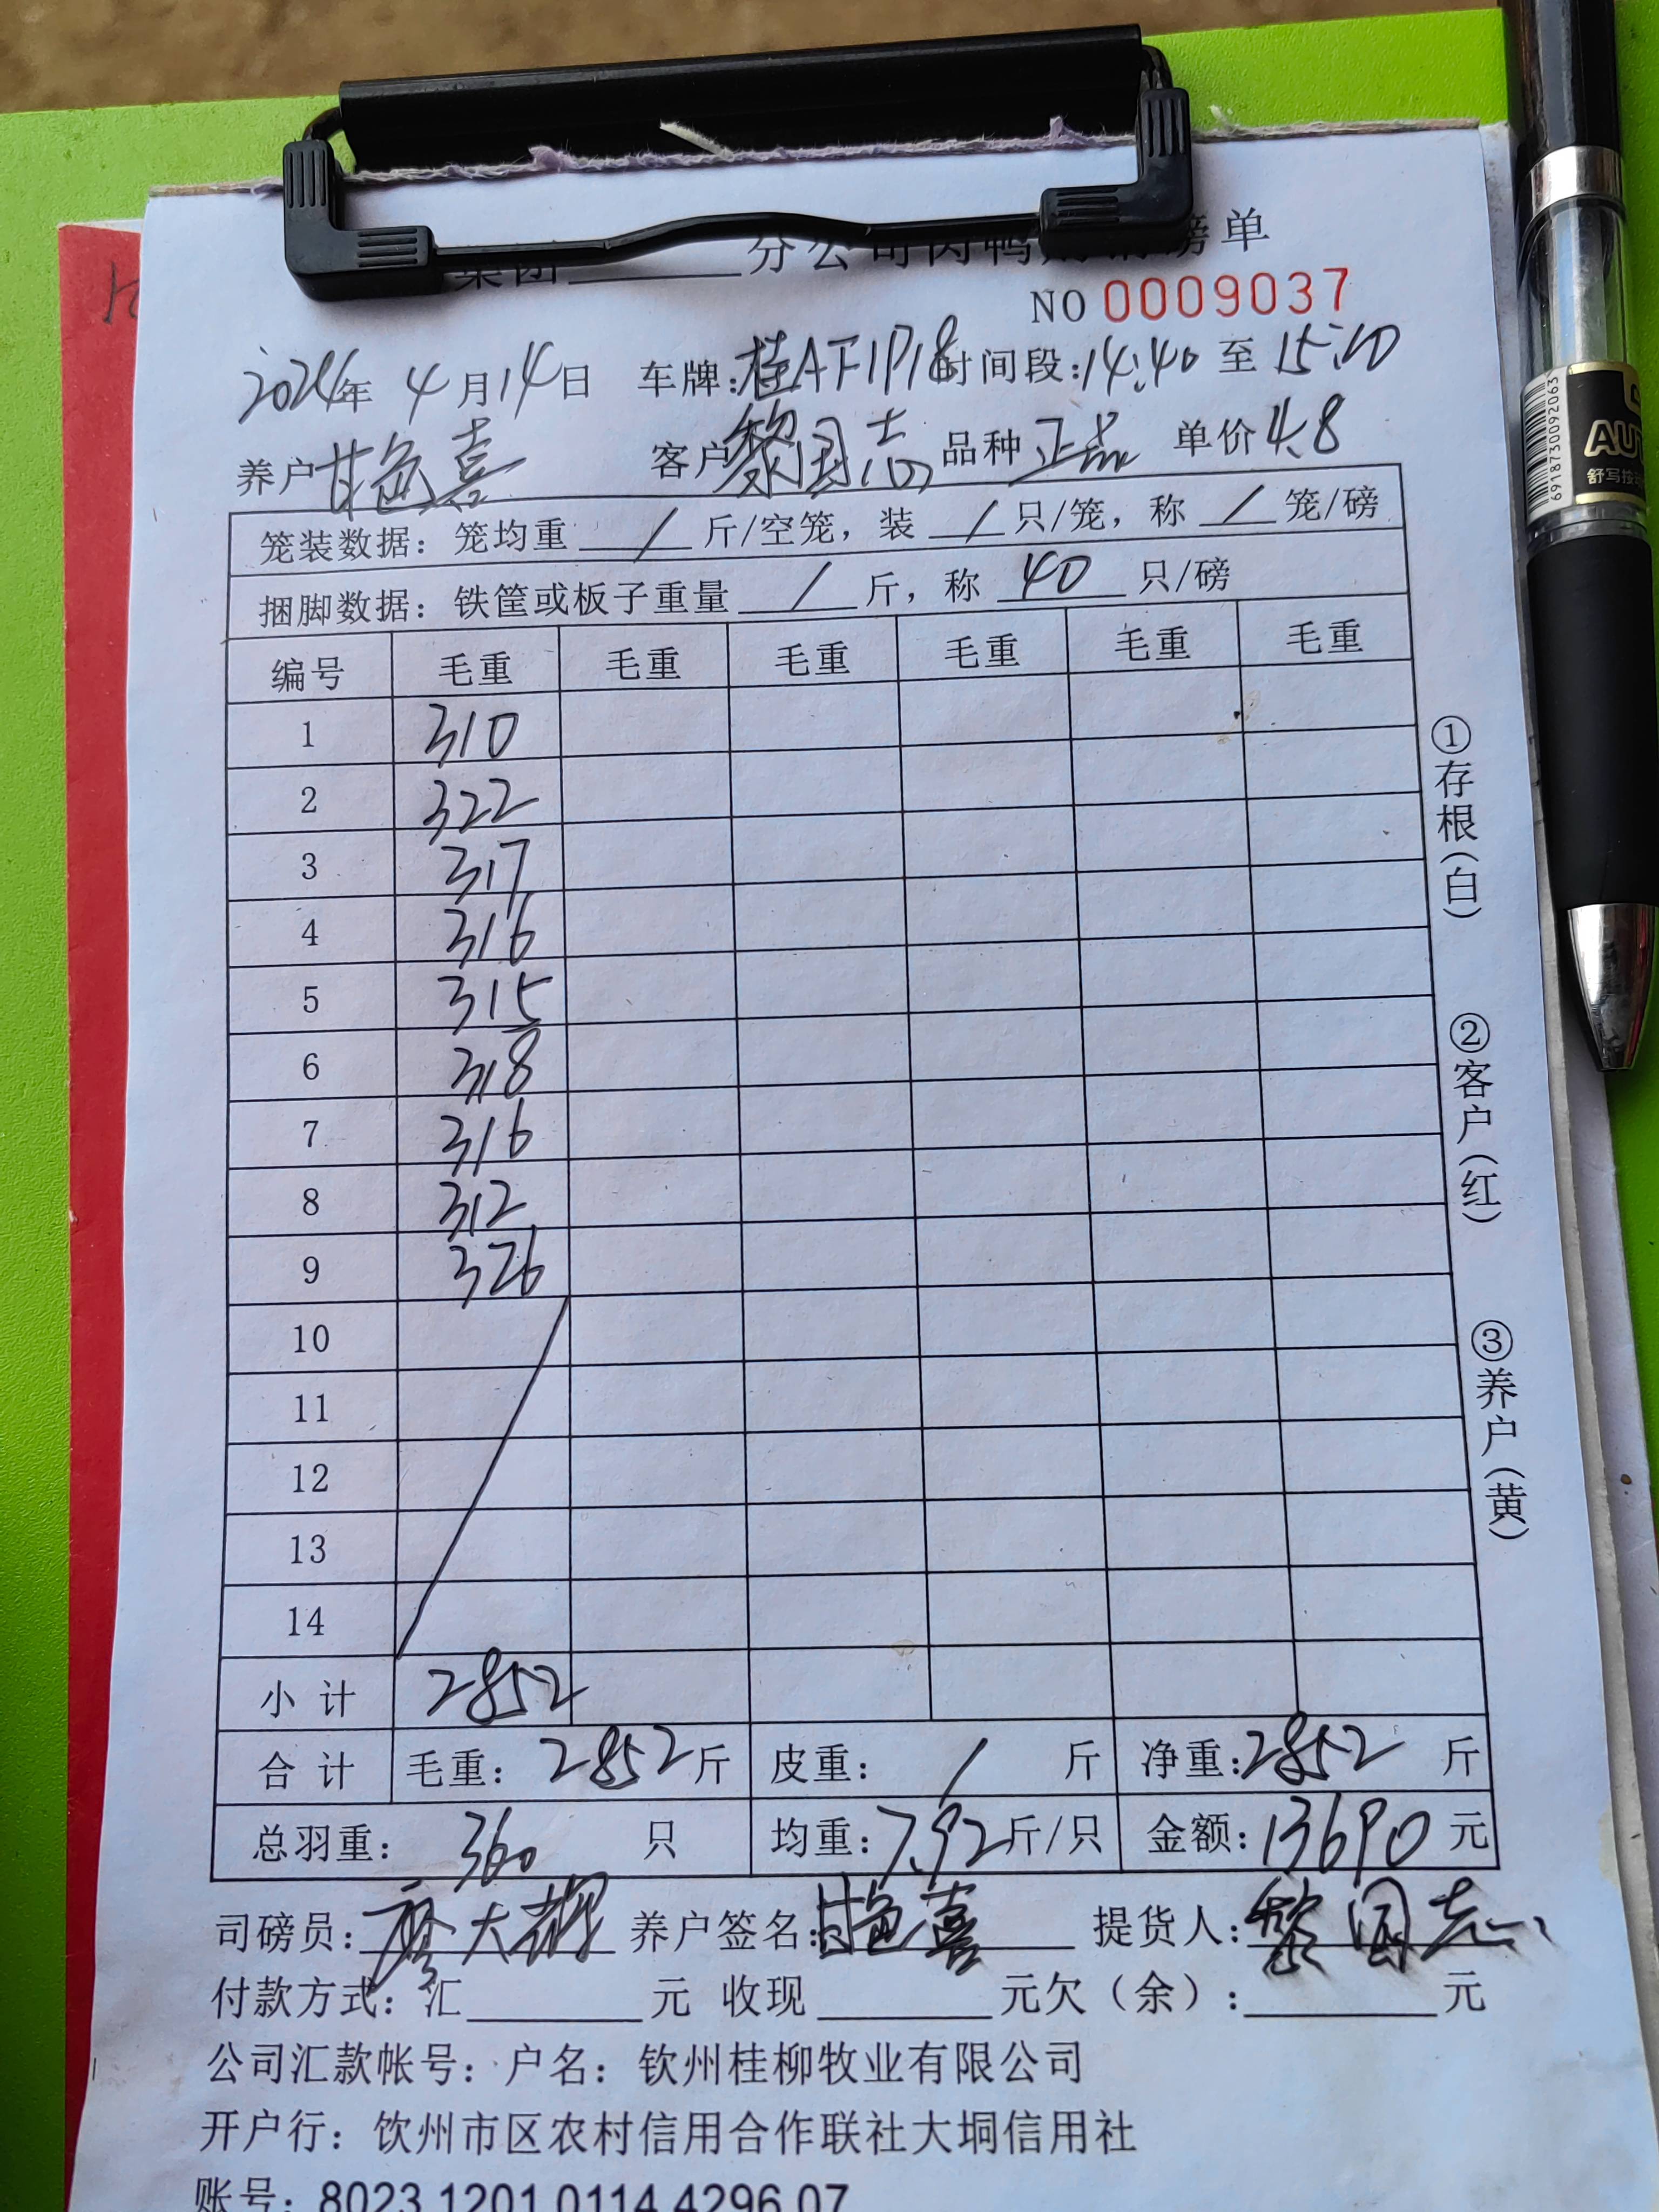 集团______分公司肉鸭购销磅单
NO 0009037
2024年 4月14日 车牌:桂AF1P18 时间段:14:40 至 15:10
养户 甘艳喜 客户 黎国志 品种 正品 单价 4.8
笼装数据：笼均重 / 斤/空笼，装 / 只/笼，称 / 笼/磅
捆脚数据：铁筐或板子重量 / 斤，称 40 只/磅
编号 毛重 毛重 毛重 毛重 毛重 毛重
1 310
2 322
3 317
4 316
5 315
6 318
7 316
8 312
9 326
10
11
12
13
14
小 计 2852
合 计 毛重：2852斤 皮重： / 斤 净重:2852 斤
总羽重：360 只 均重:7.92斤/只 金额:13690元
司磅员:廖大辉 养户签名:甘艳喜 提货人:黎国志
付款方式：汇______元 收现______元欠（余）:______元
公司汇款帐号：户名：钦州桂柳牧业有限公司
开户行：钦州市区农村信用合作联社大垌信用社
账号：8023 1201 0114 4296 07
①存根(白)
②客户(红)
③养户(黄)
6918730092063
舒写按动